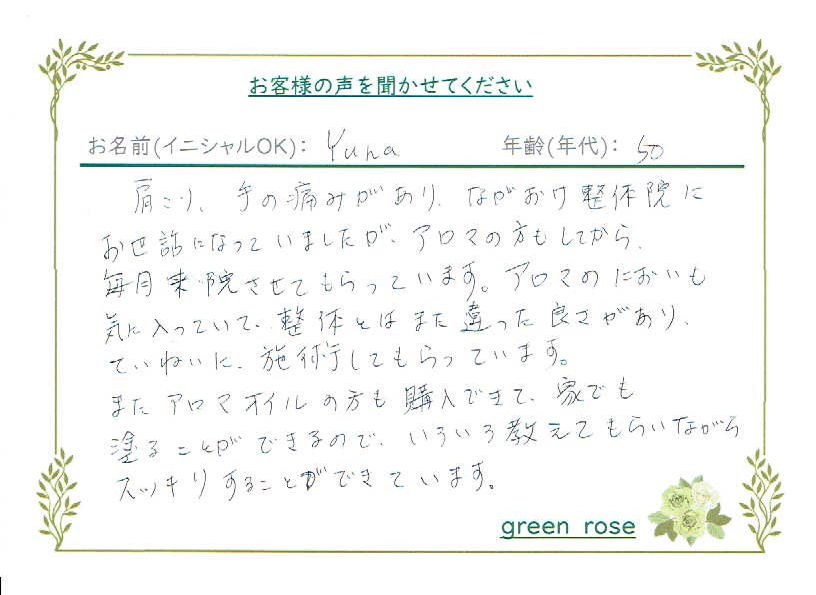 お客様の声を聞かせてください
お名前(イニシャルOK): Yuna 年齢(年代): 50
肩こり、手の痛みがあり、ながおけ整体院に
お世話になっていましたが、アロマの方もしてから、
毎月来院させてもらっています。アロマのにおいも
気に入っていて、整体とはまた違った良さがあり、
ていねいに、施術してもらっています。
またアロマオイルの方も購入できて、家でも
塗ることができるので、いろいろ教えてもらいながら
スッキリすることができています。
green rose